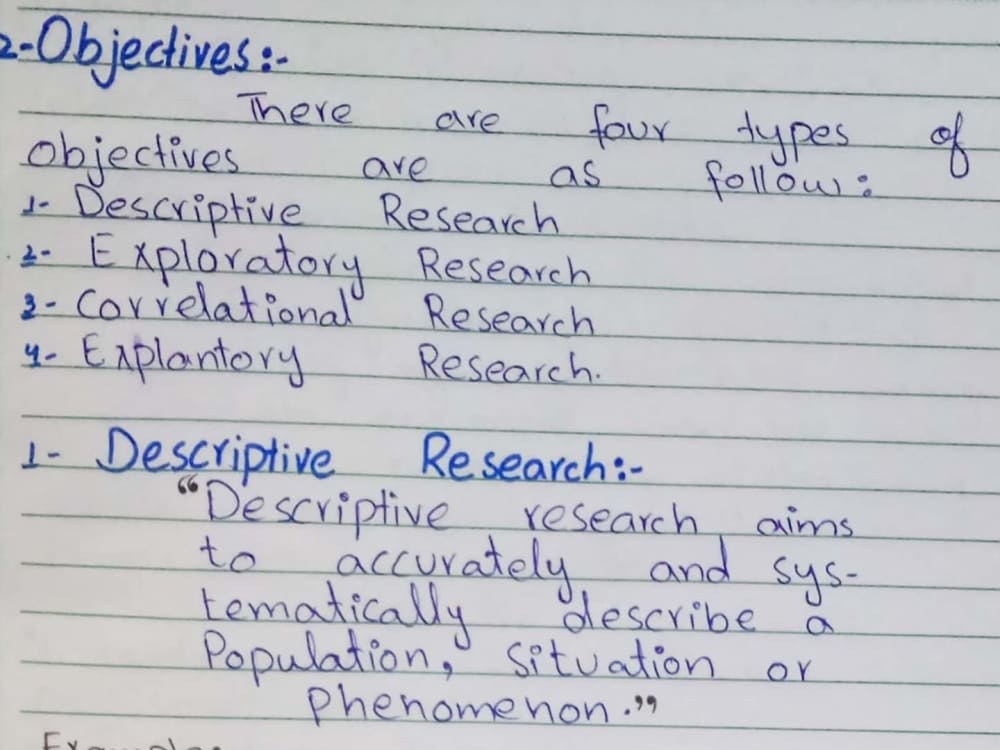 2-Objectives:-
There are four types of
objectives are as follow:
1- Descriptive Research
2- Exploratory Research
3- Correlational Research
4- Explantory Research.
1- Descriptive Research:-
“Descriptive research aims
to accurately and sys-
tematically describe a
Population, situation or
phenomenon.”